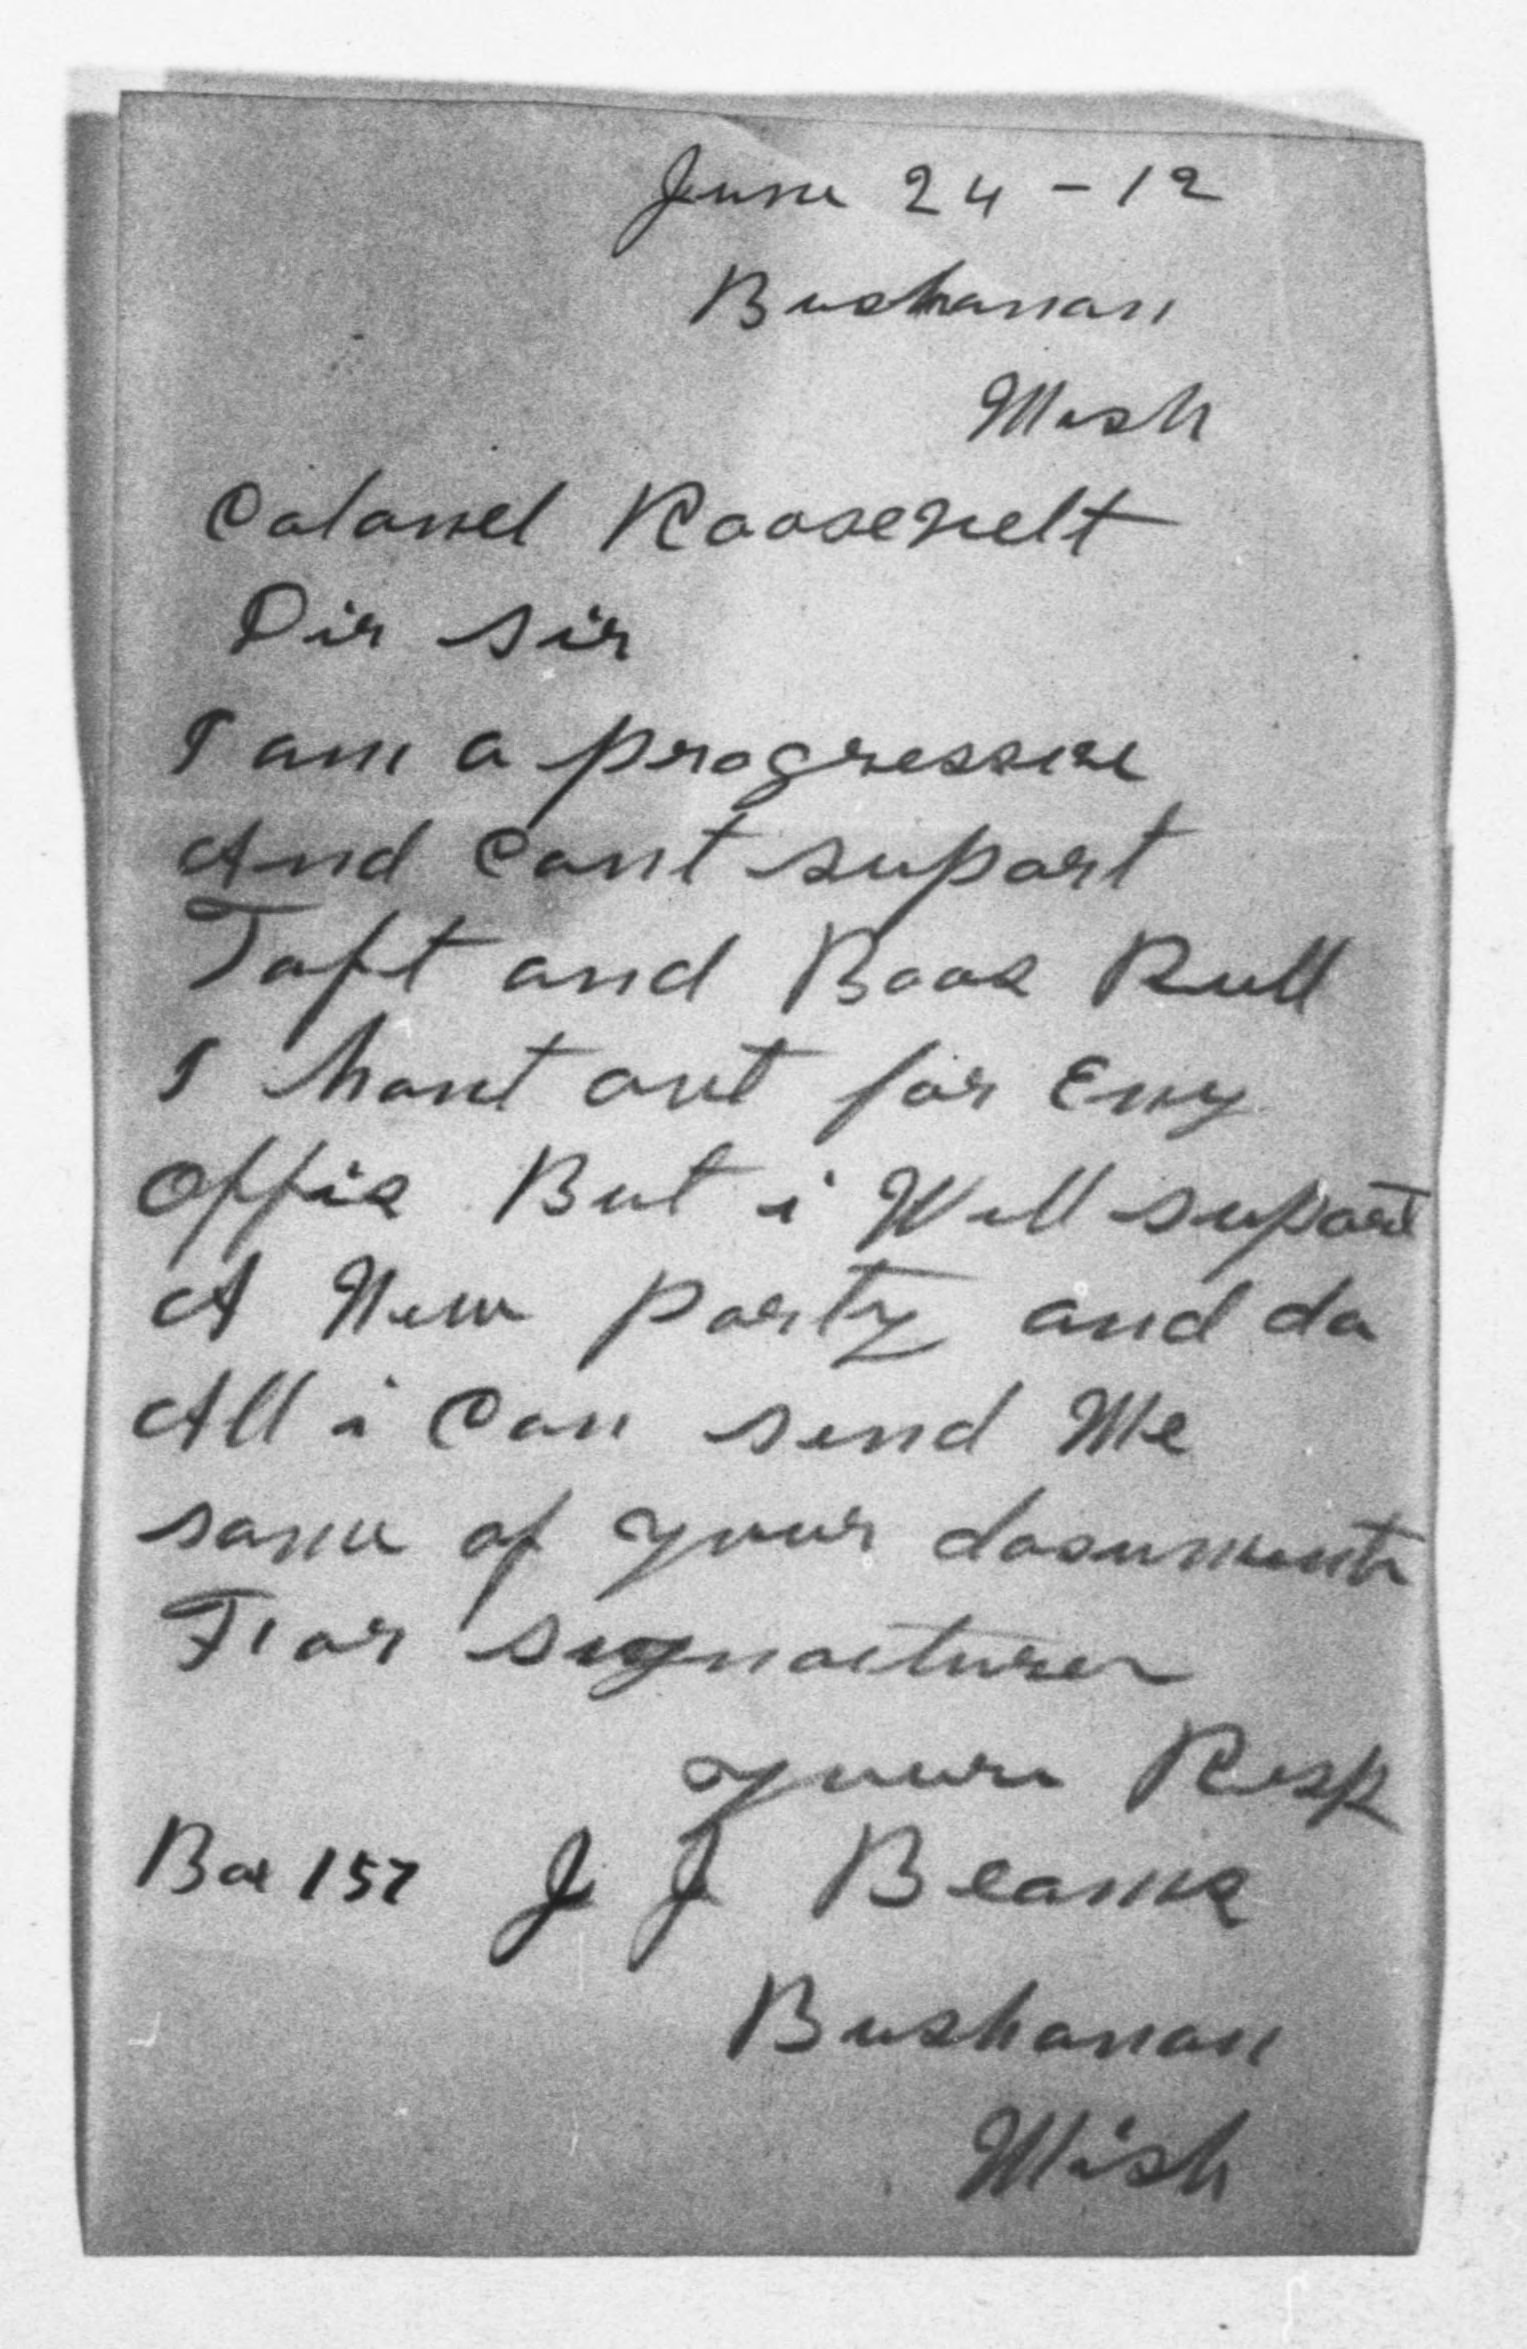 June 24 - 12
Buchanan
Mich
Colonel Roosevelt
Dir sir
I am a progressive
And Cant suport
Taft and Boos Rull
I hant out for Eny
Offis But i Will suport
A New party and do
All i Can send Me
some of your documents
For signatures
yours Resp
Box 157 J J Beams
Buchanan
Mich